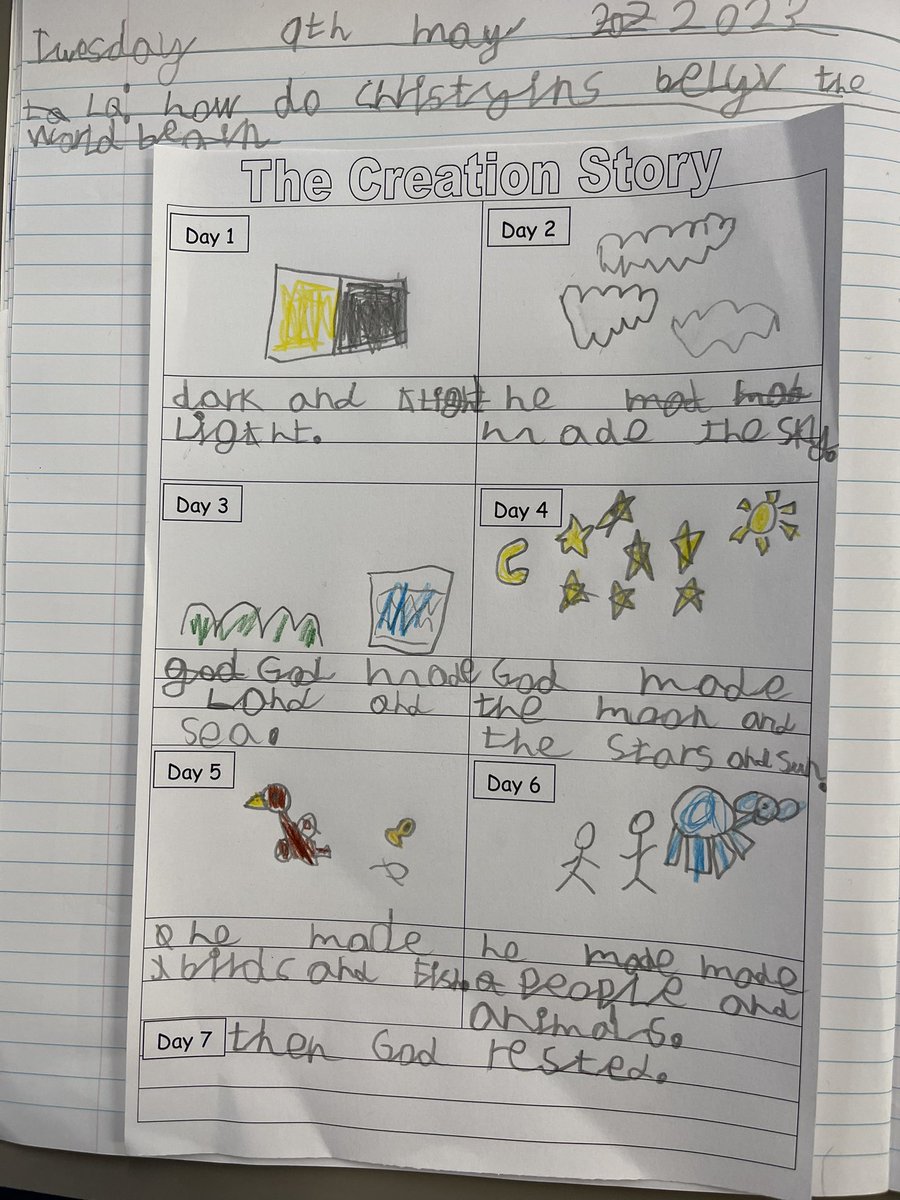 Tuesday 9th may 202 2023
La LQ: how do christyins belyv the
world begin
The Creation Story
Day 1
dark and Light
Light.
Day 2
he mad mad
made the sky.
Day 3
god God made
Land and
sea.
Day 4
God made
the moon and
the stars and sun.
Day 5
he made
birds and fish.
Day 6
he made made
people and
animals.
Day 7
then God rested.